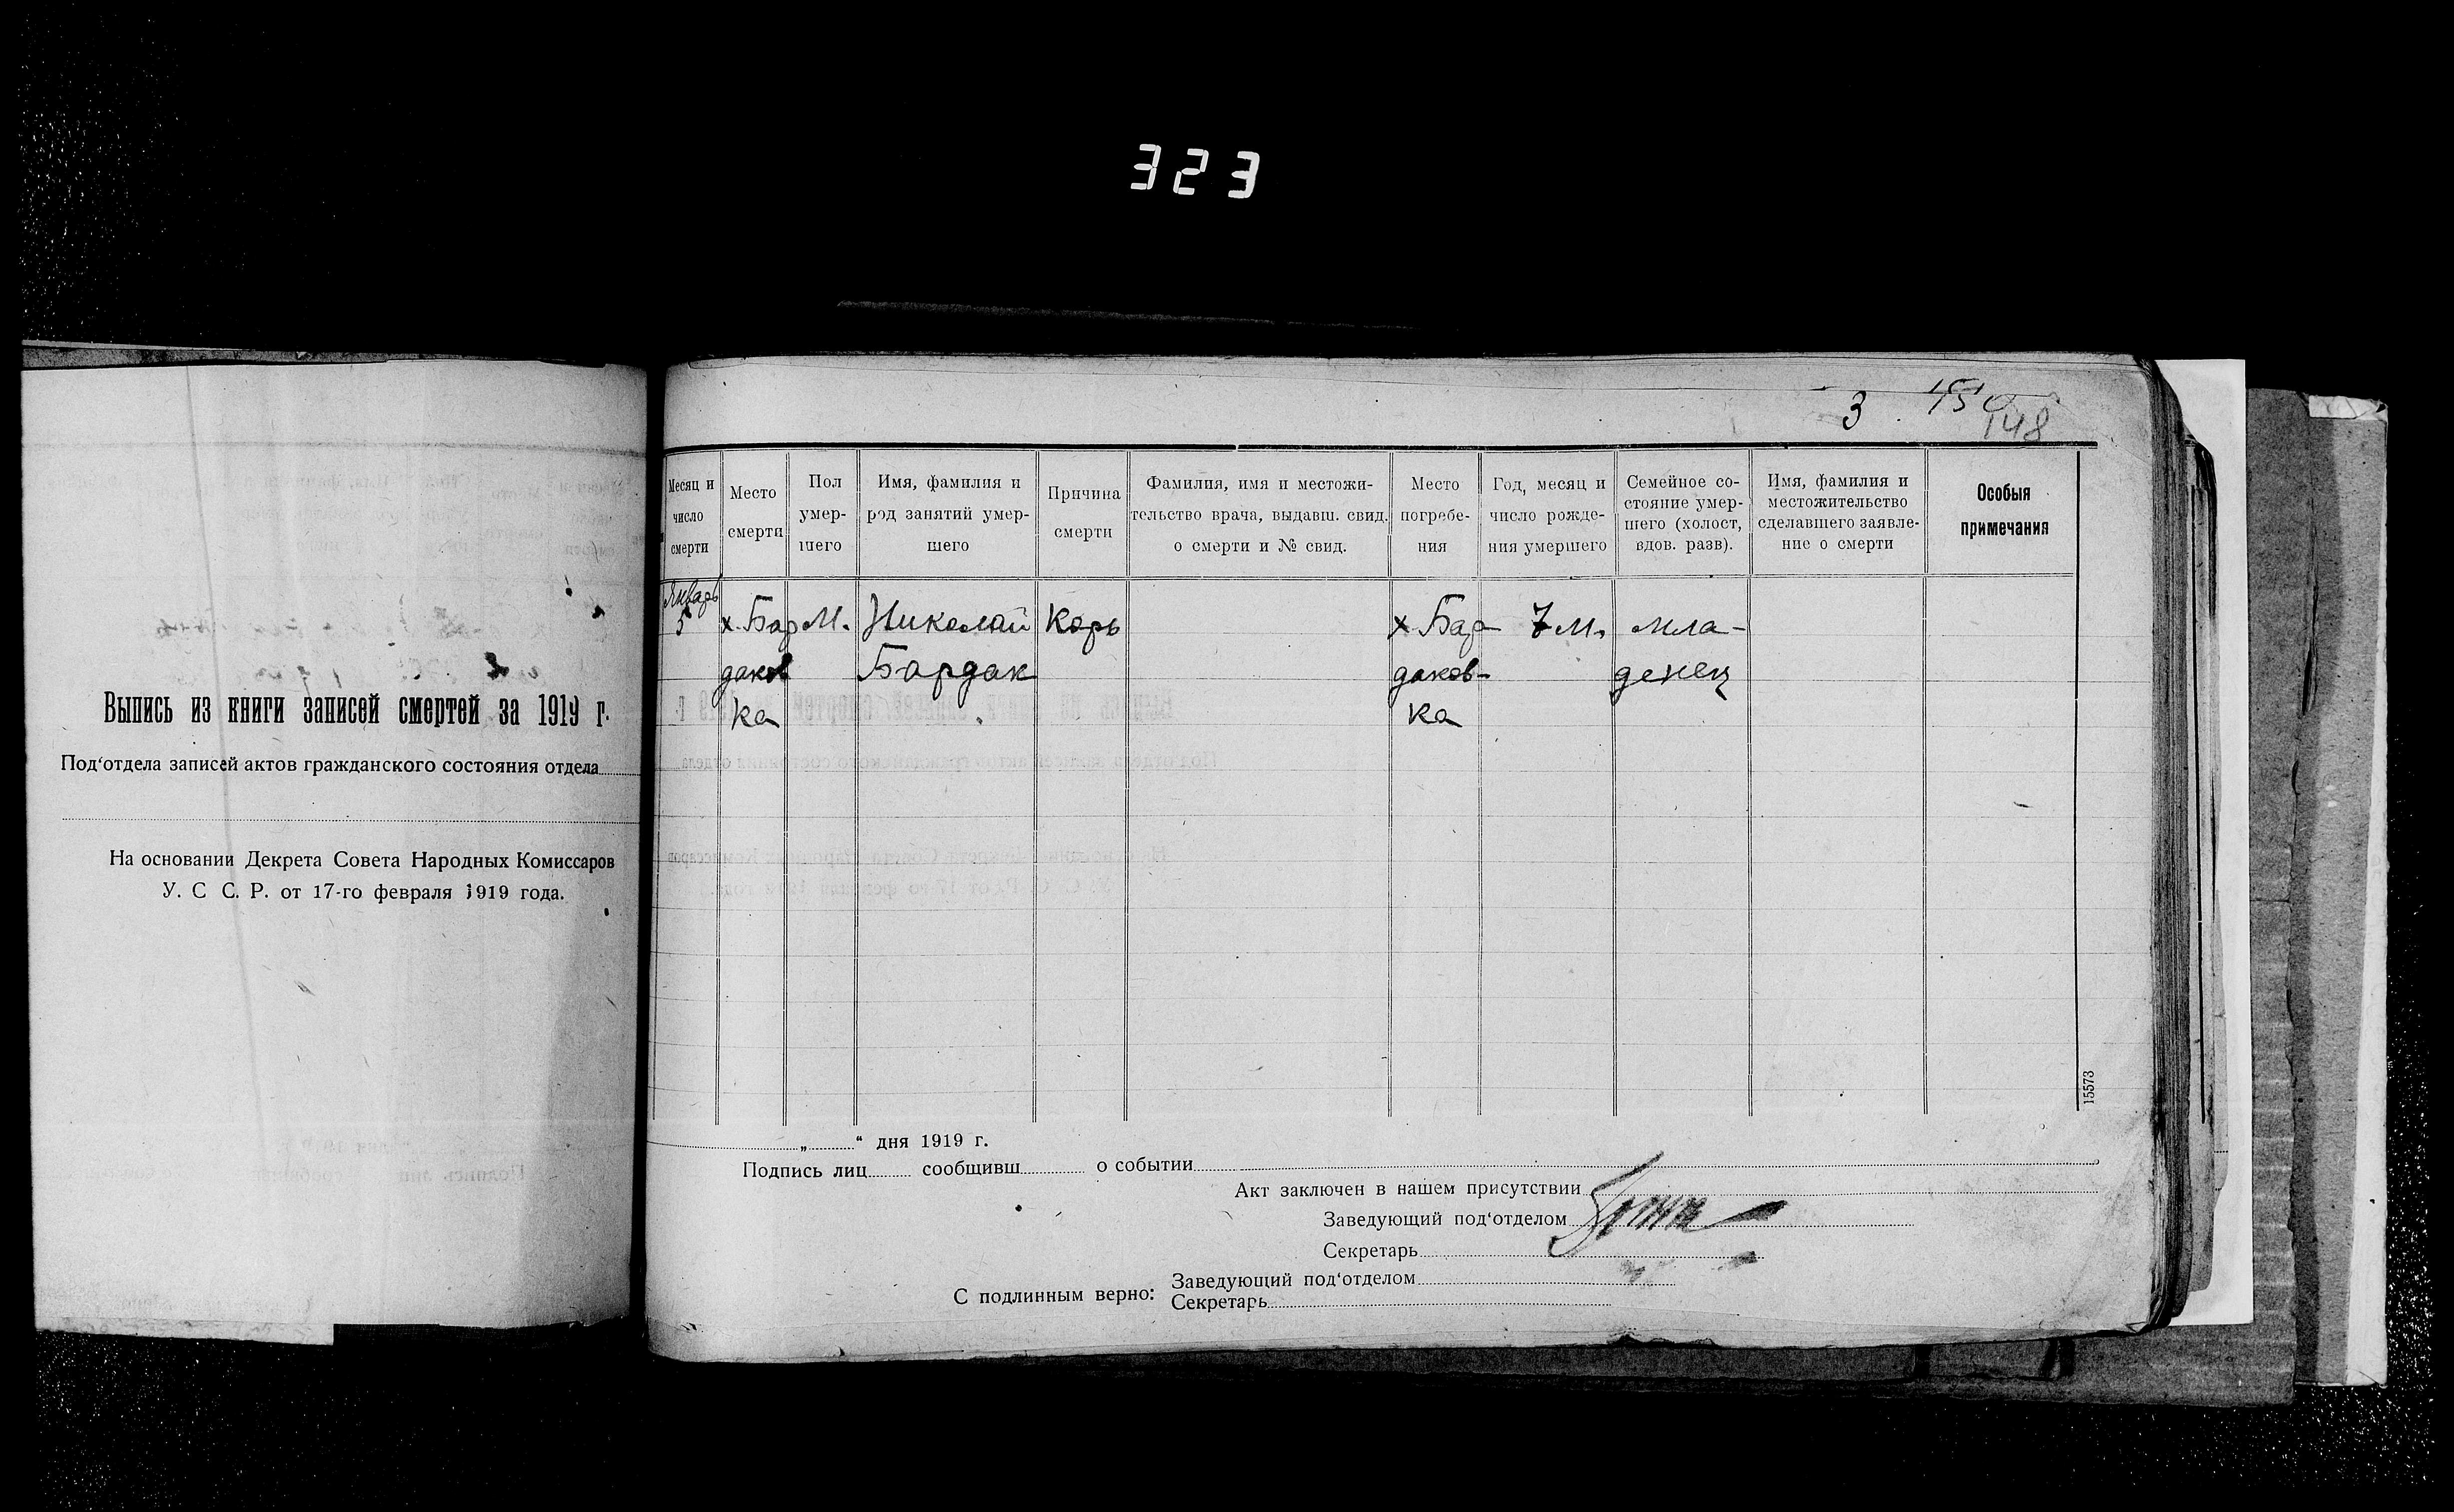 323
3 150
148
Выпись из книги записей смертей за 1919 г.
Под‘отдела записей актов гражданского состояния отдела
На основании Декрета Совета Народных Комиссаров
У. С С. Р. от 17-го февраля 1919 года.
Месяц и число смерти
Место смерти
Пол умер-
шего
Имя, фамилия и
род занятий умер-
шего
Причина
смерти
Фамилия, имя и местожи-
тельство врача, выдавш. свид.
о смерти и № свид.
Место
погребе-
ния
Год, месяц и
число рожде-
ния умершего
Семейное со-
стояние умер-
шего (холост,
вдов. разв).
Имя, фамилия и
местожительство
сделавшего заявле-
ние о смерти
Особыя
примечания
Январь
5 х. Бар М. Николай Корь х Бар- 7 м. мла-
даков Бардак даков- денец
ка ка
15573
„ “ дня 1919 г.
Подпись лиц сообщивш о событии
Акт заключен в нашем присутствии
Заведующий под‘отделом
Секретарь
С подлинным верно: Заведующий под‘отделом
Секретарь